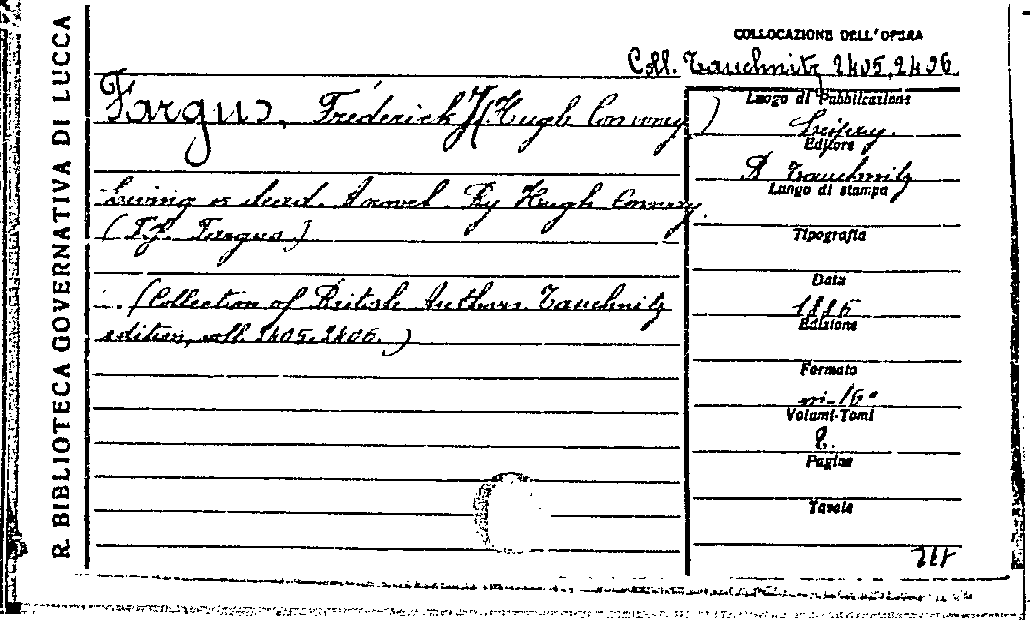 R. BIBLIOTECA GOVERNATIVA DI LUCCA
COLLOCAZIONE DELL'OPERA
Coll. Tauchnitz 2405, 2406.
Fargus, Fréderick J. (Hugh Conway)
Living or dead. A novel. By Hugh Conway.
(F. J. Fargus)
(Collection of British Authors. Tauchnitz
edition, voll. 2405.2406.)
Luogo di Pubblicazione
Editore
B Tauchnitz
Luogo di stampa
Tipografia
Data
1886
Edizione
Formato
in-16°
Volumi-Tomi
2.
Pagine
Tavole